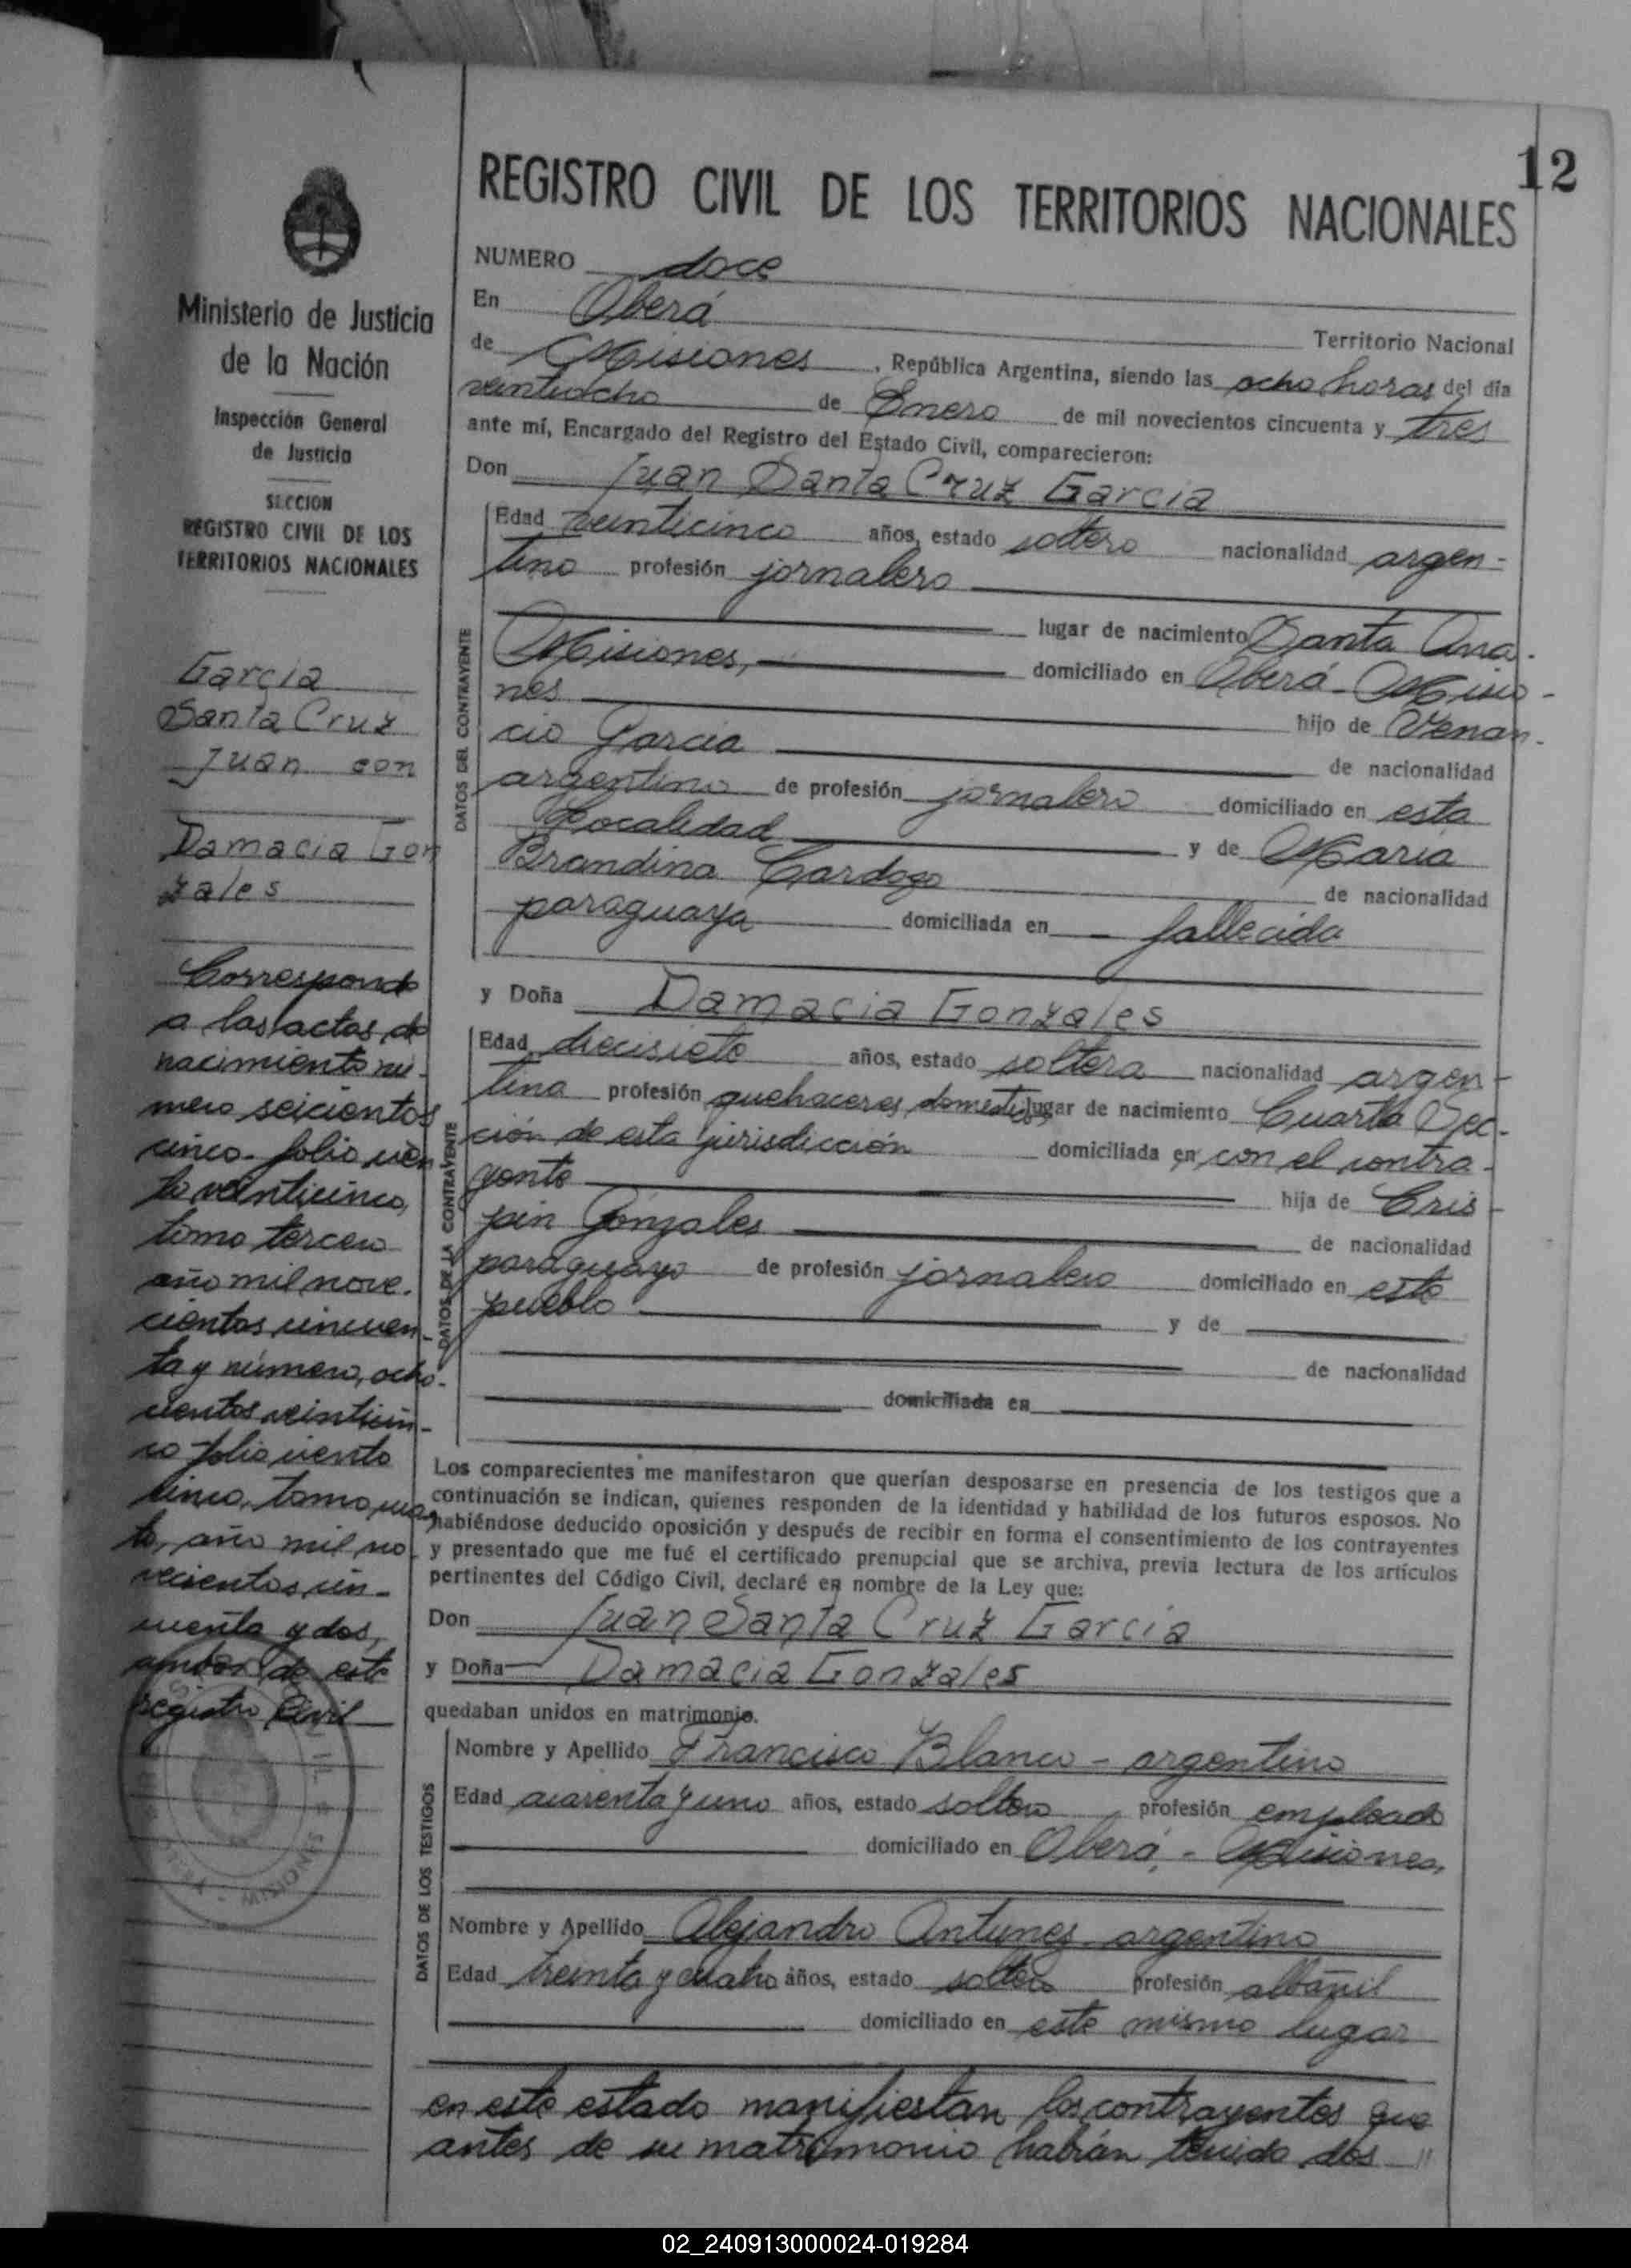 12
REGISTRO CIVIL DE LOS TERRITORIOS NACIONALES
NUMERO doce
En Oberá Territorio Nacional
de Misiones, República Argentina, siendo las ocho horas del día
veintiocho de Enero de mil novecientos cincuenta y tres
ante mí, Encargado del Registro del Estado Civil, comparecieron:
Don Juan Santa Cruz Garcia
Edad veinticinco años, estado soltero nacionalidad argen-
tino profesión jornalero
lugar de nacimiento Santa Ana.
Misiones, domiciliado en Oberá - Misio-
nes hijo de Venan-
cio Garcia de nacionalidad
argentino de profesión jornalero domiciliado en esta
Localidad y de Maria
Brandina Cardozo de nacionalidad
paraguaya domiciliada en - fallecida
DATOS DEL CONTRAYENTE
y Doña Damacia Gonzales
Edad diecisiete años, estado soltera nacionalidad argen-
tina profesión quehaceres domesticos lugar de nacimiento Cuarta Sec-
ción de esta jurisdicción domiciliada en con el contra-
yente hija de Cris-
pin Gonzales de nacionalidad
paraguayo de profesión jornalero domiciliado en este
pueblo y de
de nacionalidad
domiciliada en
DATOS DE LA CONTRAYENTE
Los comparecientes me manifestaron que querían desposarse en presencia de los testigos que a
continuación se indican, quienes responden de la identidad y habilidad de los futuros esposos. No
habiéndose deducido oposición y después de recibir en forma el consentimiento de los contrayentes
y presentado que me fué el certificado prenupcial que se archiva, previa lectura de los artículos
pertinentes del Código Civil, declaré en nombre de la Ley que:
Don Juan Santa Cruz Garcia
y Doña Damacia Gonzales
quedaban unidos en matrimonio.
Nombre y Apellido Francisco Blanco - argentino
Edad cuarenta y uno años, estado soltero profesión empleado
domiciliado en Oberá, - Misiones,
Nombre y Apellido Alejandro Antunes - argentino
Edad treinta y cuatro años, estado soltero profesión albañil
domiciliado en este mismo lugar
DATOS DE LOS TESTIGOS
en este estado manifiestan los contrayentes que
antes de su matrimonio habían tenido dos //
Ministerio de Justicia
de la Nación
Inspección General
de Justicia
SECCION
REGISTRO CIVIL DE LOS
TERRITORIOS NACIONALES
Garcia
Santa Cruz
Juan con
Damacia Gon
zales
Corresponde
a las actas de
nacimiento nú-
mero seicientos
cinco - folio cien
to veinticinco,
tomo tercero
año mil nove-
cientos cincuen-
ta y número, ocho-
cientos veinticin-
co folio ciento
cinco, tomo cuar
to, año mil no
vecientos cin-
cuenta y dos,
ambos de este
registro Civil
MISIONES
02_240913000024-019284